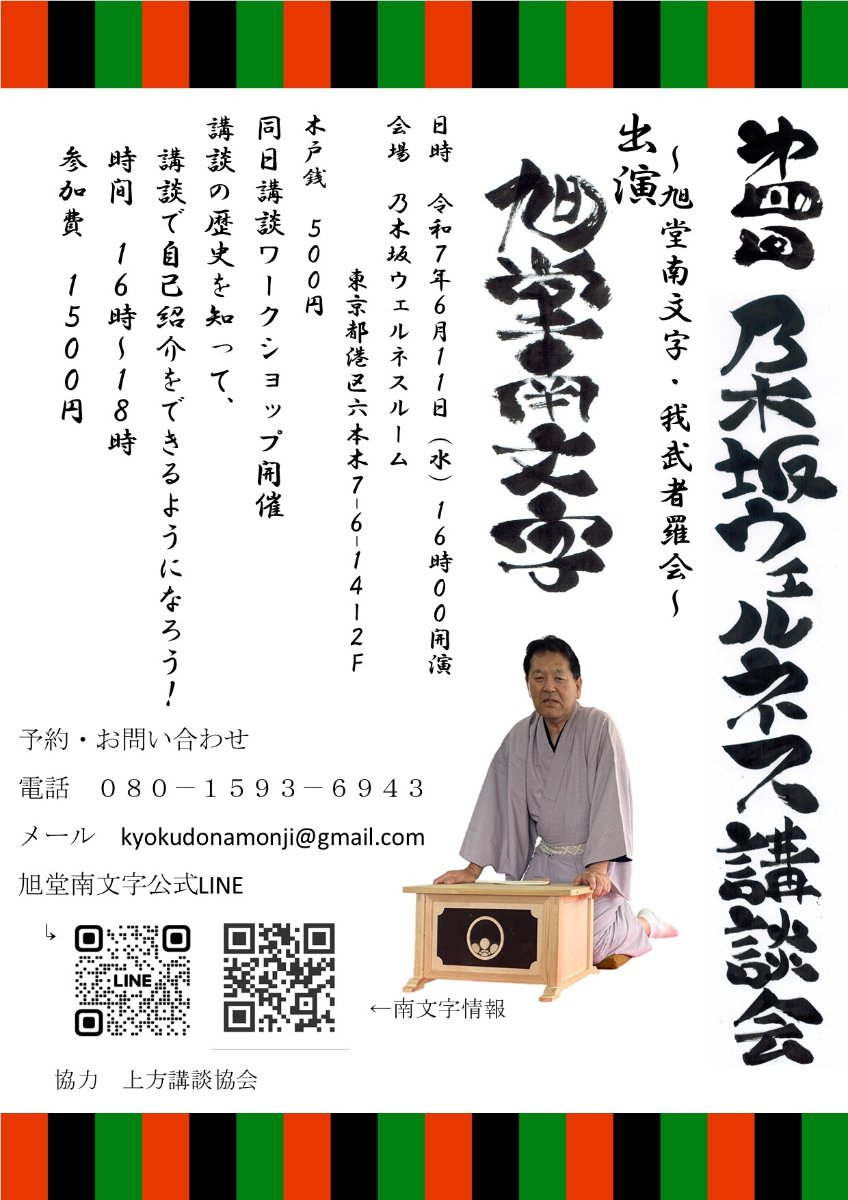 第四回
乃木坂ウェルネス講談会
～旭堂南文字・我武者羅会～
出演
旭堂南文字
日時 令和7年6月11日(水)16時00開演
会場 乃木坂ウェルネスルーム
東京都港区六本木7-6-14-2F
木戸銭 500円
同日講談ワークショップ開催
講談の歴史を知って、
講談で自己紹介をできるようになろう!
時間 16時～18時
参加費 1500円
予約・お問い合わせ
電話 080-1593-6943
メール kyokudonamonji@gmail.com
旭堂南文字公式LINE
↳
LINE
←南文字情報
協力 上方講談協会